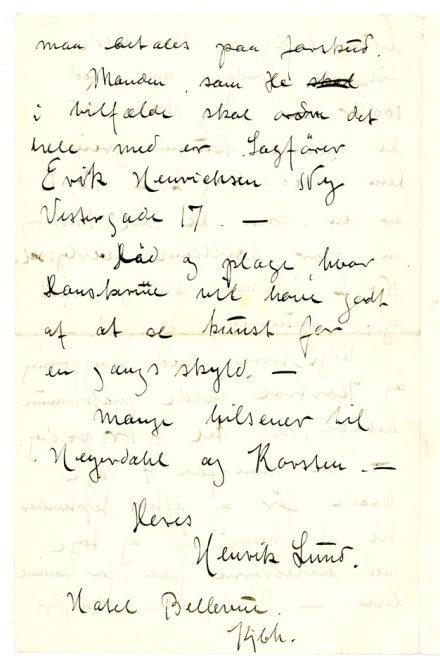 maa betales paa forskud.
Manden, som De skal
i tilfælde skal ordne det
hele med er Sagfører
Erik Henrichsen Ny
Vestergade 17. —
Råd og plage, hvor
danskerne vil have godt
af at se kunst for
en gangs skyld. —
Mange hilsener til
Hegerdahl og Karsten. —
Deres
Henrik Lund.
Hotel Bellevue.
Kjbh.